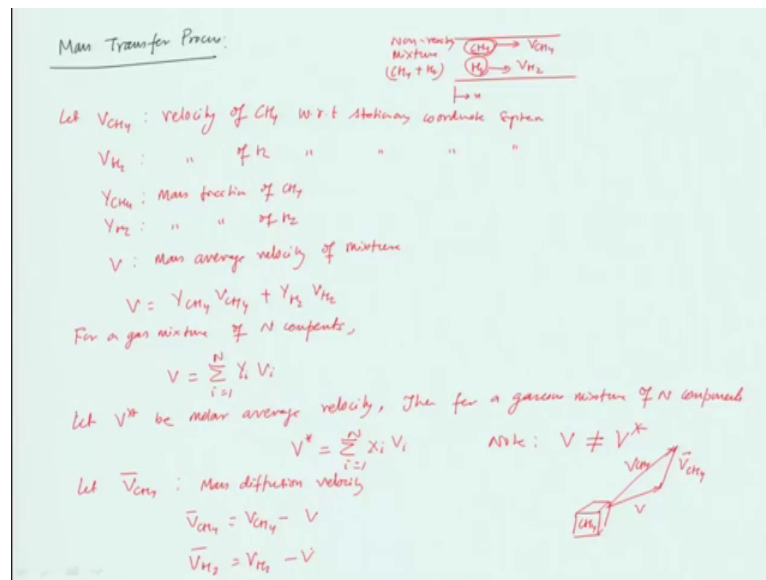 Mass Transfer Process:
Non-reacting
Mixture
(CH4 + H2)
CH4 → VCH4
H2 → VH2
↦ x
Let VCH4 : velocity of CH4 w.r.t stationary coordinate system
VH2 : " of H2 " " " "
YCH4 : Mass fraction of CH4
YH2 : " " of H2
V : Mass average velocity of mixture
V = YCH4 VCH4 + YH2 VH2
For a gas mixture of N compents,
V = ∑ i=1 N Yi Vi
Let V* be molar average velocity, Then for a gaseous mixture of N components
V* = ∑ i=1 N Xi Vi Note : V ≠ V*
Let V̅CH4 : Mass diffusion velocity
V̅CH4 = VCH4 - V
V̅H2 = VH2 - V
CH4 VCH4 V̅CH4 V